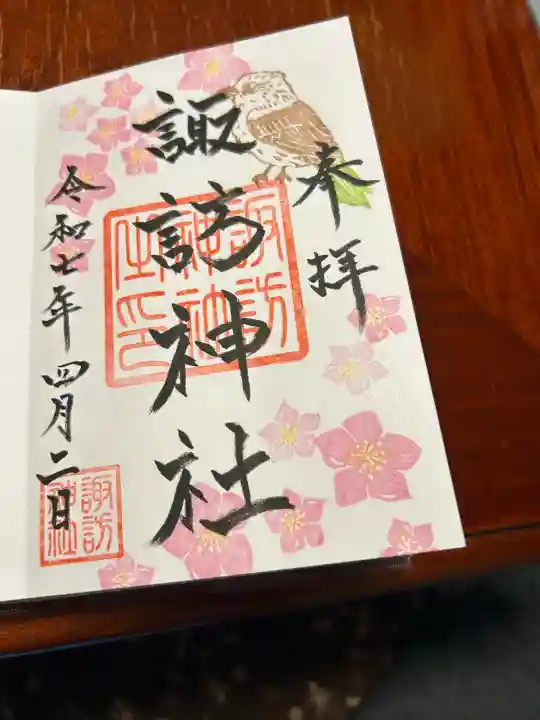 奉拝
諏訪神社
令和七年四月二日
諏訪神社住印
諏訪神社